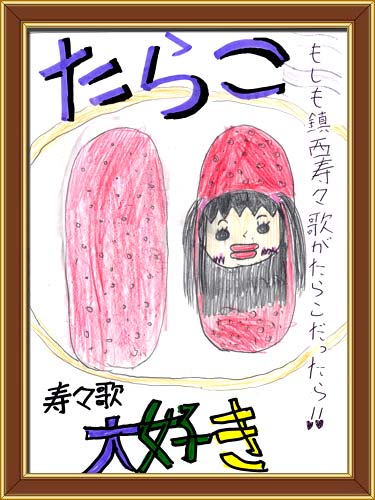 たらこ
もしも鎮西寿々歌がたらこだったら!!
寿々歌
大好き